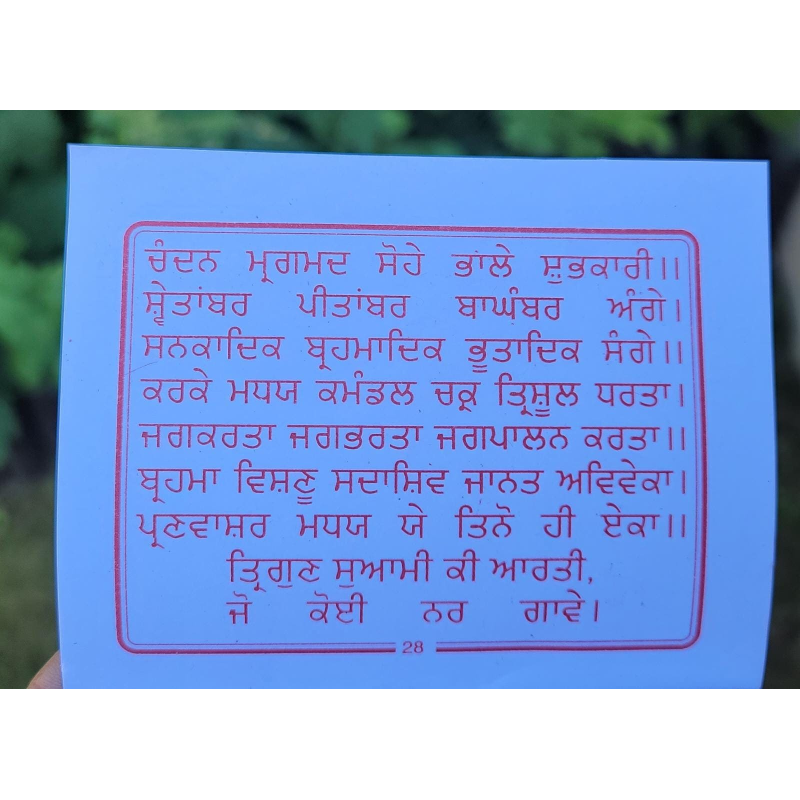 ਚੰਦਨ ਮ੍ਰਗਮਦ ਸੋਹੇ ਭਾਲੇ ਸ਼ੁਭਕਾਰੀ।।
ਸ਼੍ਵੇਤਾਂਬਰ ਪੀਤਾਂਬਰ ਬਾਘੰਬਰ ਅੰਗੇ।
ਸਨਕਾਦਿਕ ਬ੍ਰਹਮਾਦਿਕ ਭੂਤਾਦਿਕ ਸੰਗੇ।।
ਕਰਕੇ ਮਧਯ ਕਮੰਡਲ ਚਕ੍ਰ ਤ੍ਰਿਸ਼ੂਲ ਧਰਤਾ।
ਜਗਕਰਤਾ ਜਗਭਰਤਾ ਜਗਪਾਲਨ ਕਰਤਾ।।
ਬ੍ਰਹਮਾ ਵਿਸ਼ਣੂ ਸਦਾਸ਼ਿਵ ਜਾਨਤ ਅਵਿਵੇਕਾ।
ਪ੍ਰਣਵਾਸ਼ਰ ਮਧਯ ਯੇ ਤਿਨੋ ਹੀ ਏਕਾ।।
ਤ੍ਰਿਗੁਣ ਸੁਆਮੀ ਕੀ ਆਰਤੀ,
ਜੋ ਕੋਈ ਨਰ ਗਾਵੇ।
28